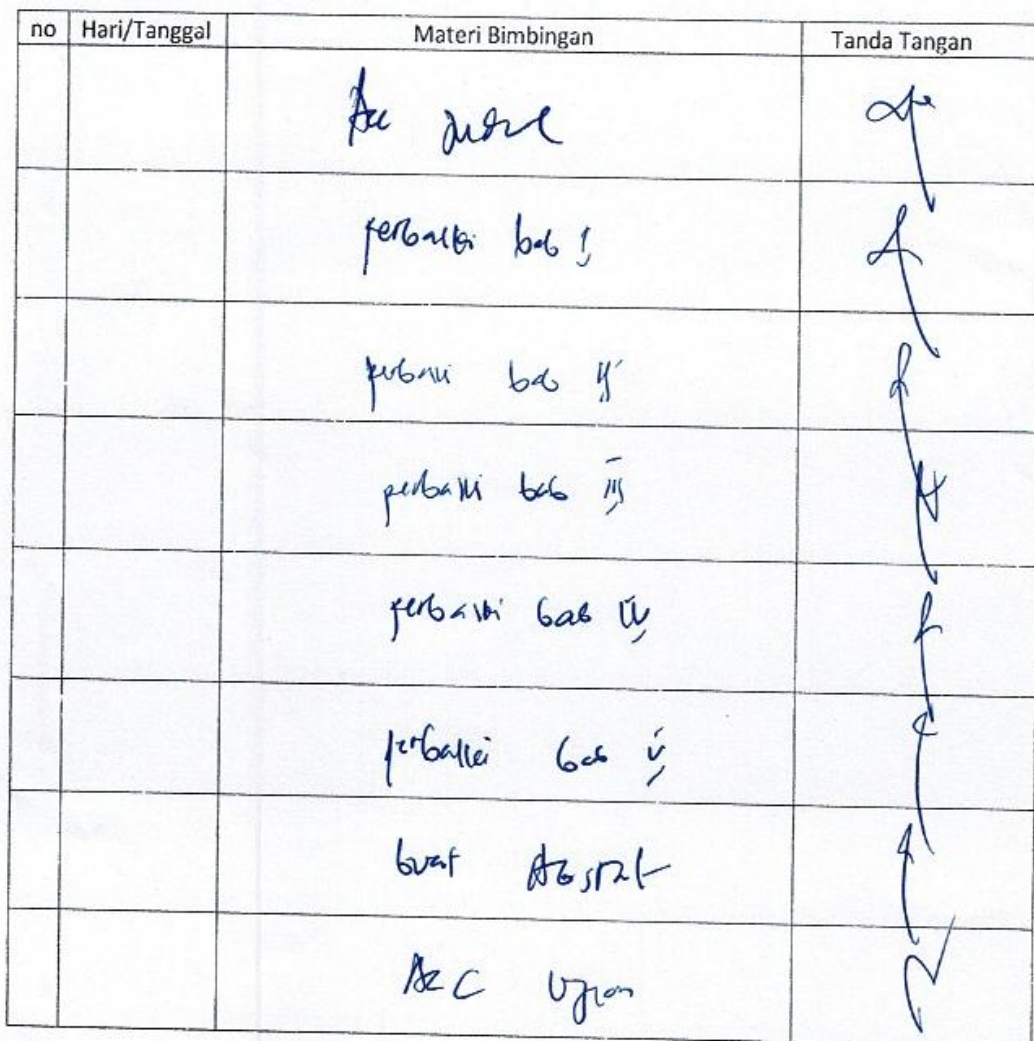 no Hari/Tanggal Materi Bimbingan Tanda Tangan
Acc judul
perbaiki bab I
perbaiki bab II
perbaiki bab III
perbaiki bab IV
perbaiki bab V
buat Abstrak
ACC Ujian